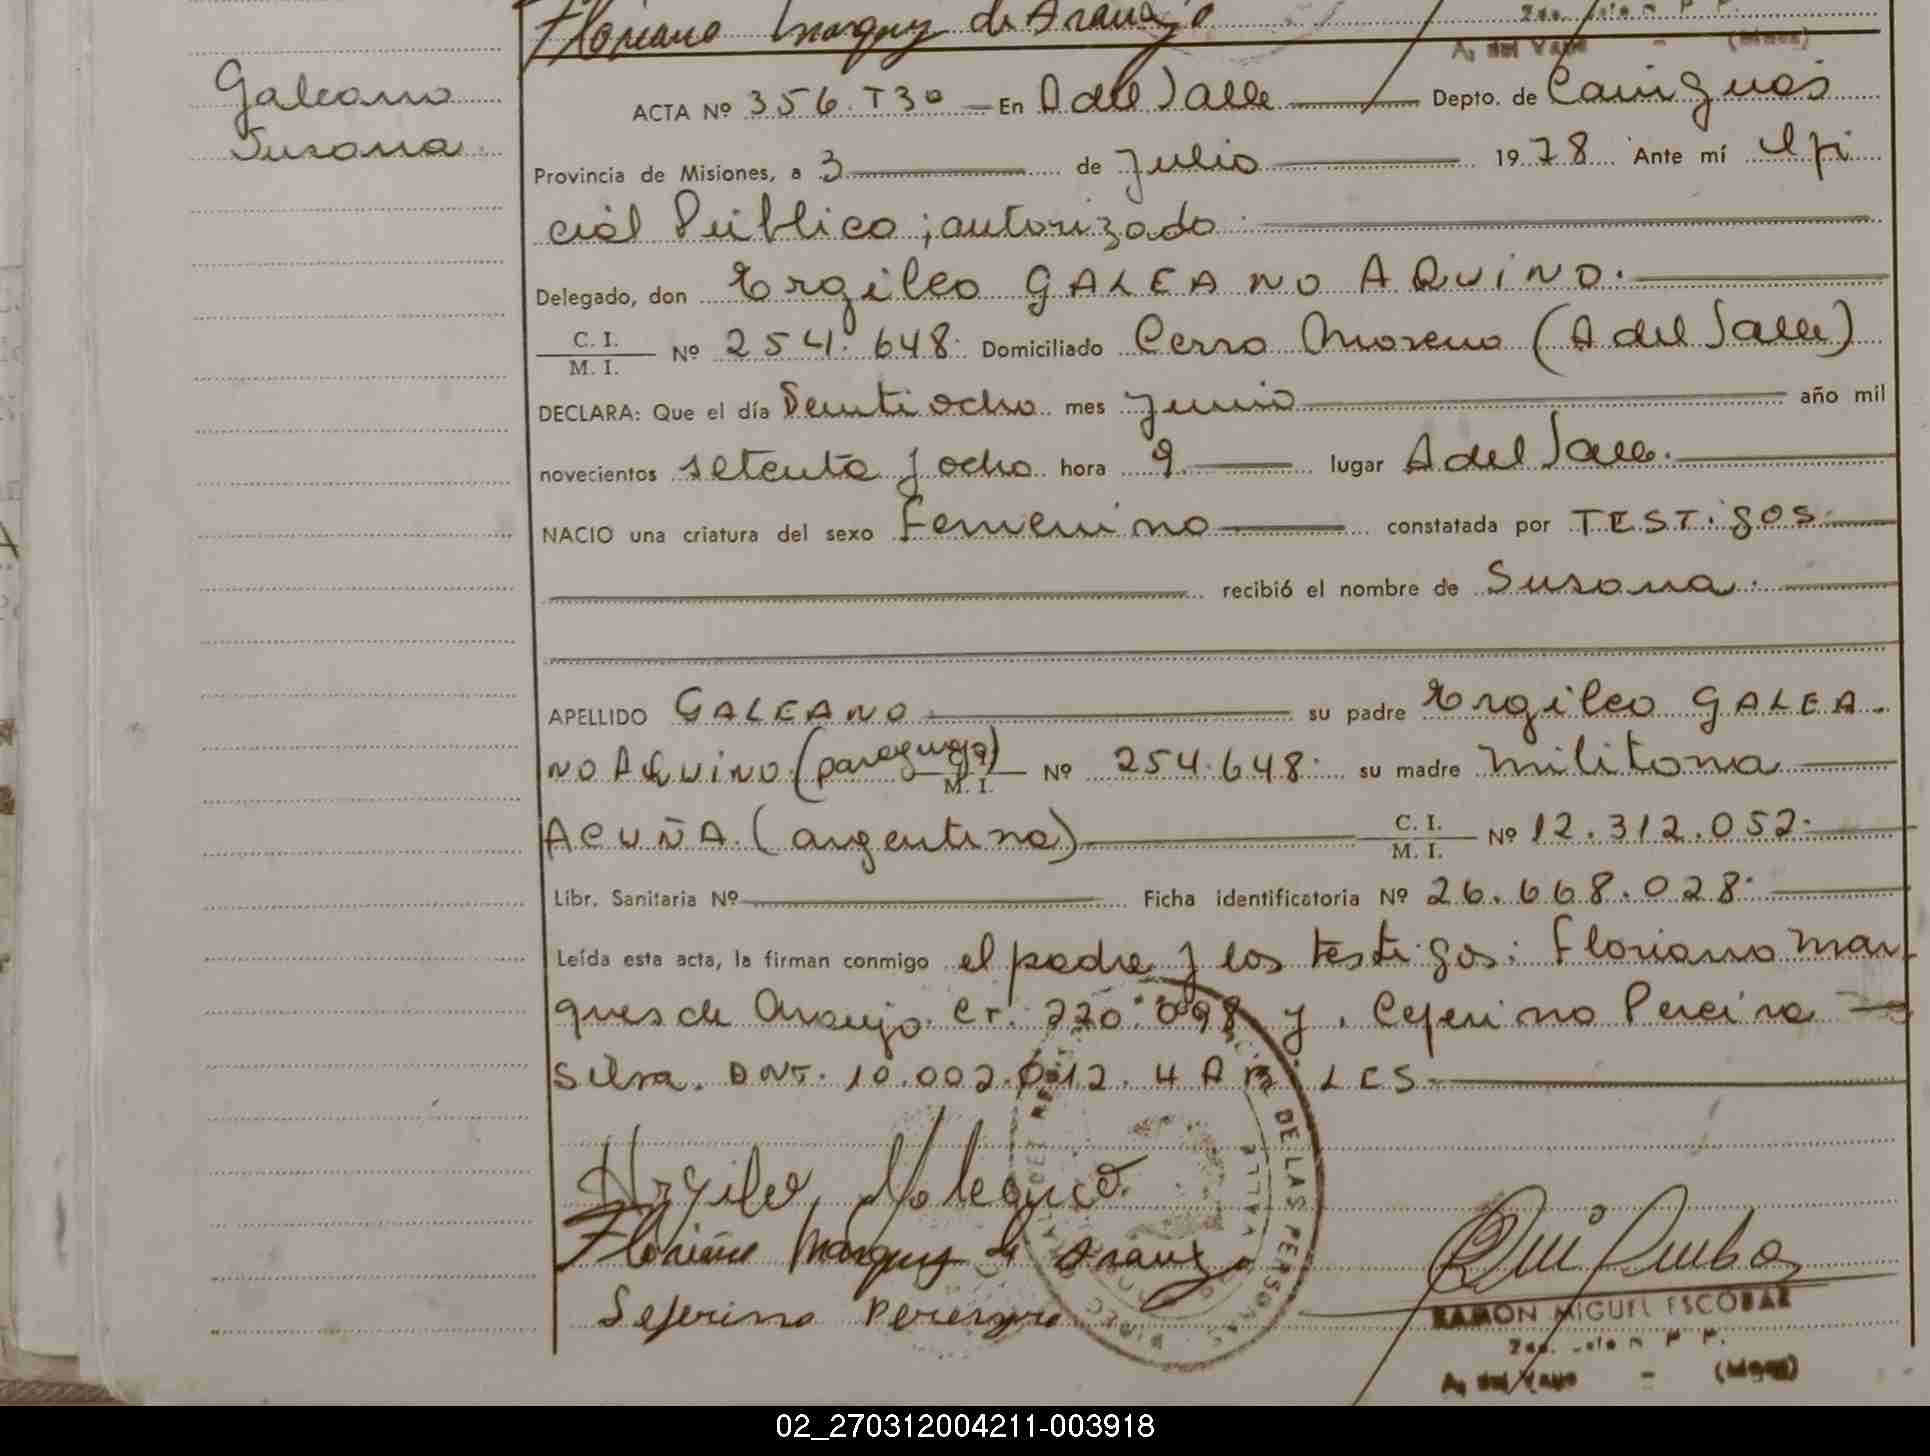 Floriano Marques de Araujo
A. del Valle - (Mnes)
Galeano
Susana
ACTA Nº 356.T3º En A del Valle Depto. de Cainguás
Provincia de Misiones, a 3 de Julio 1978 Ante mí Ofi
cial Público; autorizado
Delegado, don Ergileo GALEANO AQUINO.
C. I. / M. I. Nº 254.648. Domiciliado Cerro Moreno (A del Valle)
DECLARA: Que el día Veintiocho mes Junio año mil
novecientos setenta y ocho hora 9 lugar A del Valle.
NACIO una criatura del sexo Femenino constatada por TESTigos
recibió el nombre de Susana.
APELLIDO GALEANO su padre Ergileo GALEA-
NO AQUINO (paraguayo) M. I. Nº 254.648. su madre Militona
ACUÑA (argentina) C. I. / M. I. Nº 12.312.052.
Libr. Sanitaria Nº Ficha identificatoria Nº 26.668.028.
Leída esta acta, la firman conmigo el padre y los testigos: Floriano Mar
ques de Araujo. Cr. 220.098 y, Ceferino Pereira
Silva. DNI. 10.002.012. 4 A
Floriano Marques de Araujo
Seferino Pereyra
DE LAS PERSONAS
RAMON MIGUEL ESCOBAR
A. del Valle - (Mnes)
02_270312004211-003918